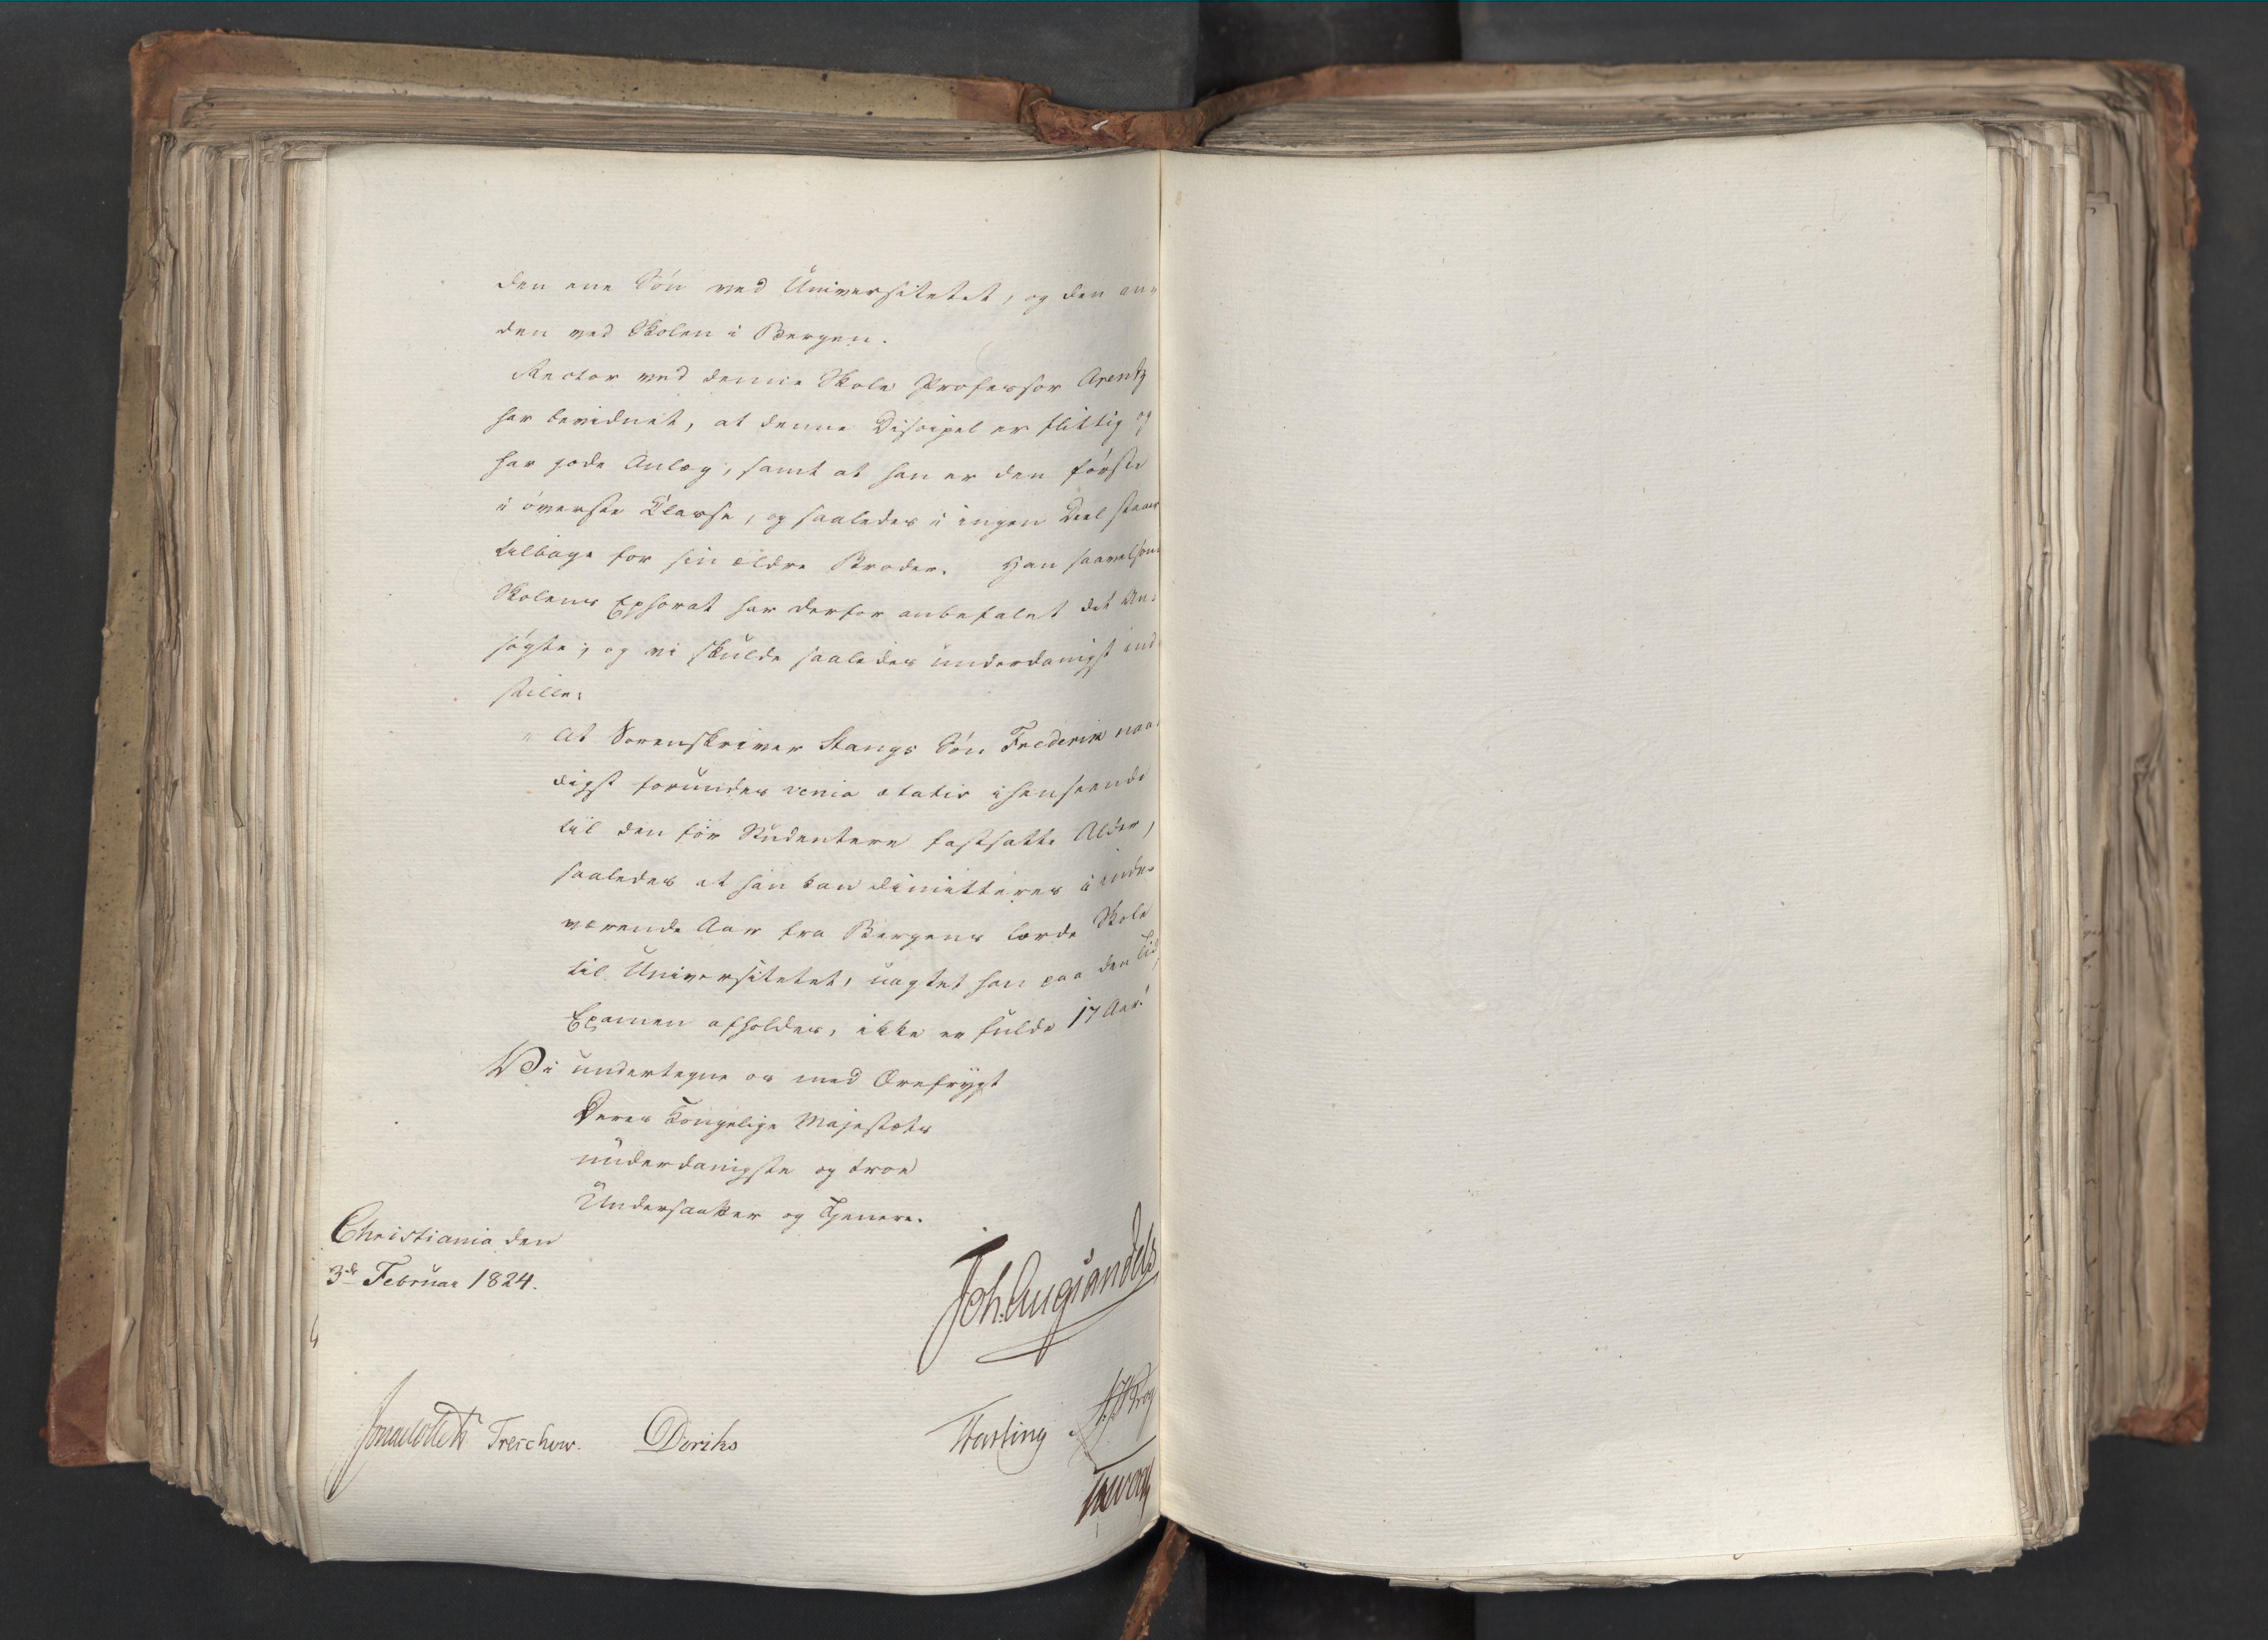 den ene Søn ved Universitetet, og den an-
den ved Skolen i Bergen.
Rector ved denne Skole Professor Arentz
har bevidnet, at denne Discipel er flittig og
har gode Anlæg, samt at han er den første
i øverste Classe, og saaledes i ingen Deel staaer
tilbage for sin ældre Broder. Han saavelsom
Skolens Ephorat har derfor anbefalet det An-
søgte; og vi skulde saaledes underdanigst ind
stille:
" At Sorenskriver Stangs Søn Frederik naa-
digst forundes venia ætatis i henseende
til den for Studentere fastsatte Alder,
saaledes at han kan dimitteres i inde-
værende Aar fra Bergens lærde Skole
til Universitetet, uagtet han paa den Tid,
Examen afholdes, ikke er fulde 17 Aar."
Vi undertegne os med Ærefrygt
Deres Kongelige Majestæts
underdanigste og troe
Undersaatter og Tjenere.
Christiania den
3de Februar 1824.
Joh. Aug Sandels
Jonas Collett Treschow. Diriks Fasting Krog